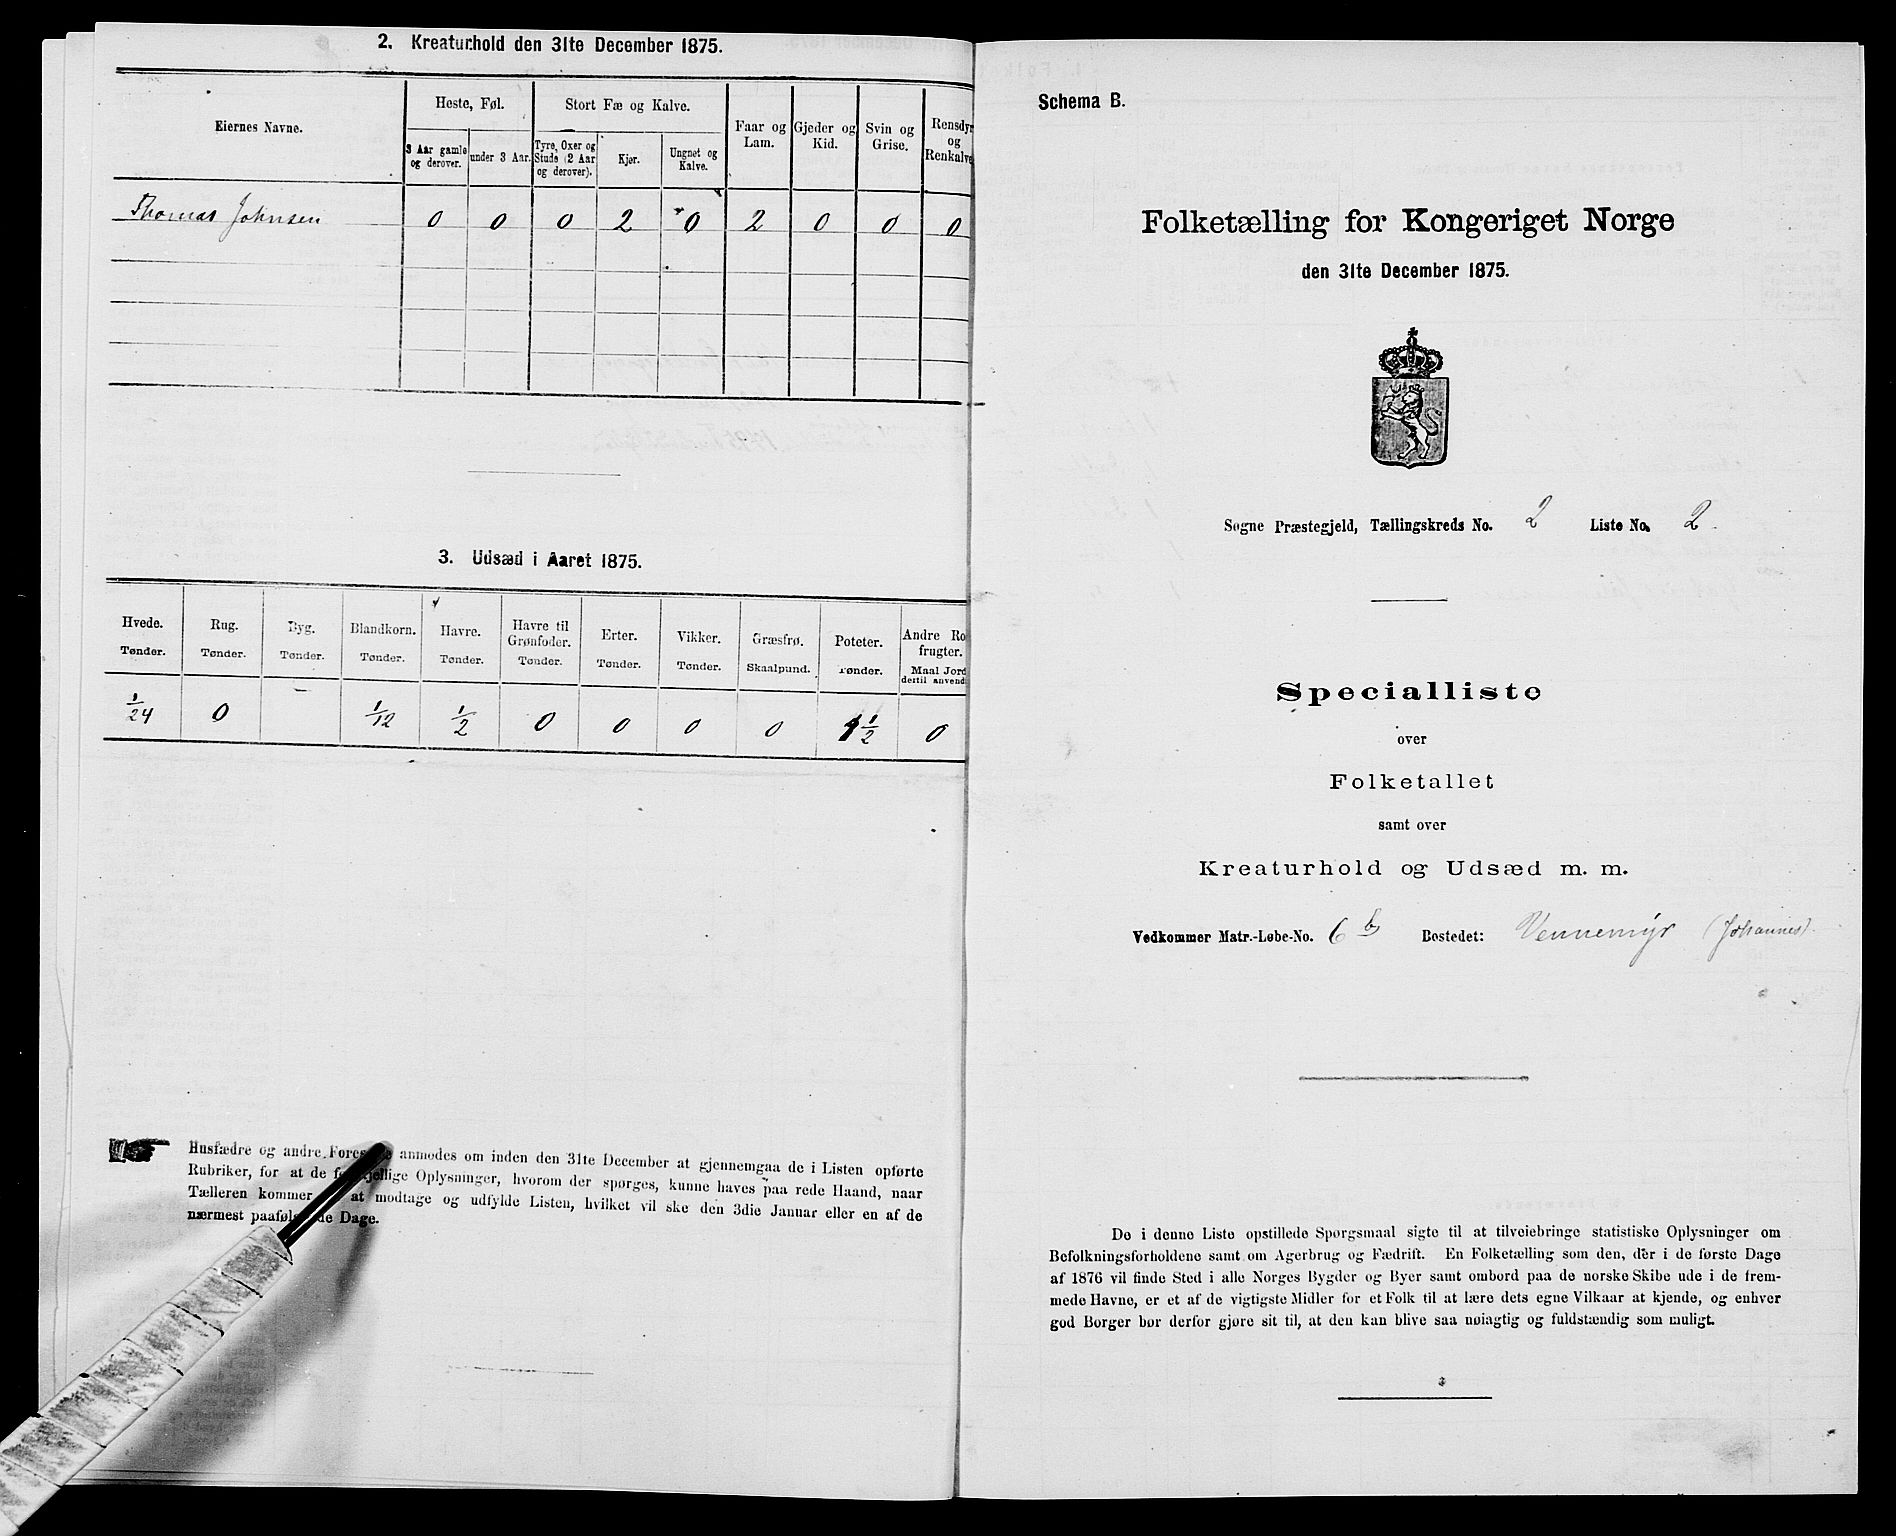 2. Kreaturhold den 31te December 1875.
Eiernes Navne.
Heste, Føl.
Stort Fæ og Kalve.
Faar og Lam.
Gjeder og Kid.
Svin og Grise.
Rensdyr og Renkalve
3 Aar gamle og derover.
under 3 Aar.
Tyre, Oxer og Stude (2 Aar og derover).
Kjør.
Ungnet og Kalve.
Thomas Johnsen 0 0 0 2 0 2 0 0 0
3. Udsæd i Aaret 1875.
Hvede. Rug. Byg. Blandkorn. Havre. Havre til Grønfoder. Erter. Vikker. Græsfrø. Poteter. Andre Ro frugter.
Tønder. Tønder. Tønder. Tønder. Tønder. Tønder. Tønder. Tønder. Skaalpund. Tønder. Maal Jord dertil anvend
1/24 0 1/12 1/2 0 0 0 0 1 1/2 0
Husfædre og andre anmodes om inden den 31te December at gjennemgaa de i Listen opførte
Rubriker, for at de Oplysninger, hvorom der spørges, kunne haves paa rede Haand, naar
Tælleren kommer at modtage og udfylde Listen, hvilket vil ske den 3die Januar eller en af de
nærmest Dage.
Schema B.
Folketælling for Kongeriget Norge
den 31te December 1875.
Søgne Præstegjeld, Tællingskreds No. 2 Liste No. 2.
Specialliste
over
Folketallet
samt over
Kreaturhold og Udsæd m. m.
Vedkommer Matr.-Løbe-No. 6 b Bostedet: Vennemyr (Johannes).
De i denne Liste opstillede Spørgsmaal sigte til at tilveiebringe statistiske Oplysninger om
Befolkningsforholdene samt om Agerbrug og Fædrift. En Folketælling som den, der i de første Dage
af 1876 vil finde Sted i alle Norges Bygder og Byer samt ombord paa de norske Skibe ude i de frem-
mede Havne, er et af de vigtigste Midler for et Folk til at lære dets egne Vilkaar at kjende, og enhver
god Borger bør derfor gjøre sit til, at den kan blive saa nøiagtig og fuldstændig som muligt.